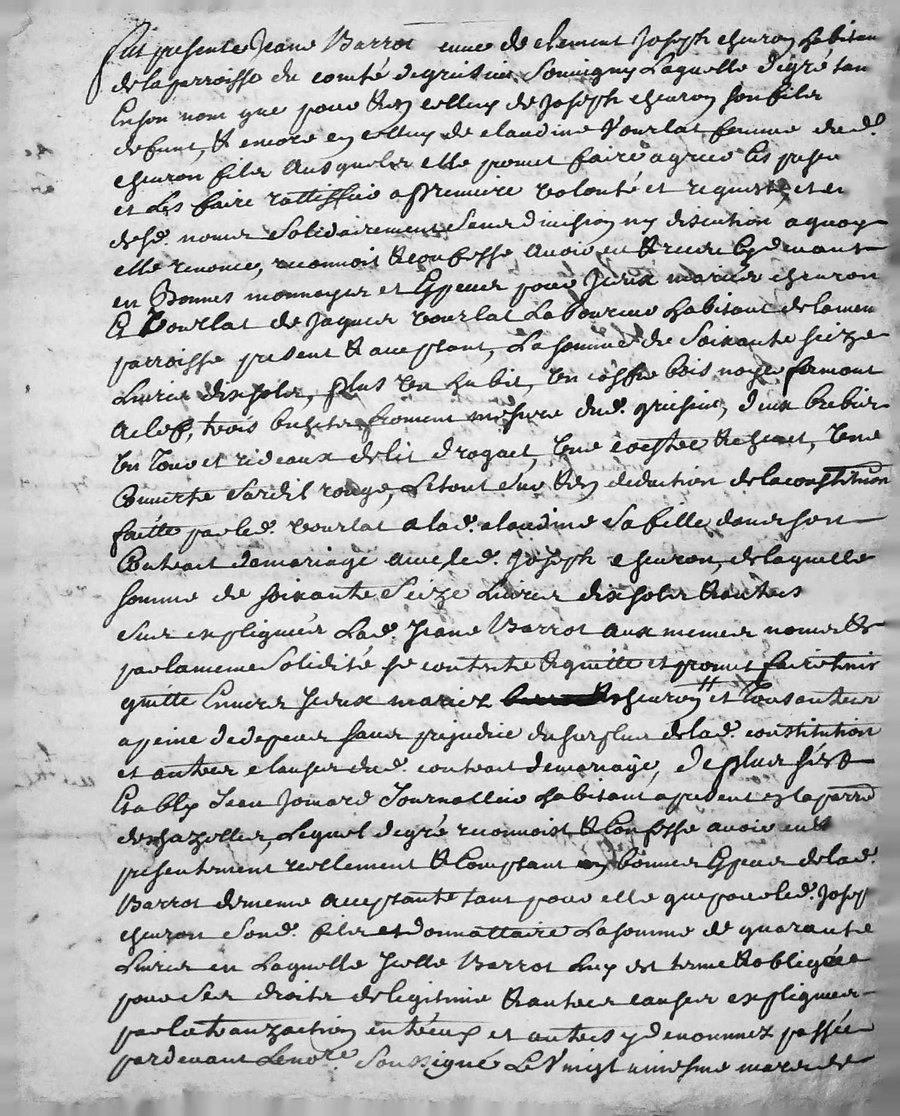 fut presente Jeane Barrot veuve de clement Joseph cheuron habitan
de la parroisse du comté de Souuigny Laquelle de gré tan
En son nom que pour & en celluy de Joseph cheuron son filz
defunt, & encore en celluy de claudine Vourlat femme dud.
cheuron filz Ausquelz elle promet faire agreer Les pntes
et Les faire rattiffier a premiere volonté et requeste, et en
desd. noms Solidairement Sans diuision ny discution a quoy
elle renonce, reconnoit & confesse Avoir eu & receu Cy deuant
en Bonnes monnoyes et Especes pour Jceux mariez cheuron
& Vourlat de Jaques Vourlat Laboureur habitant de la mem
parroisse present & acceptant, La somme de Soixante seize
Liures dix solz, plus Un habit, Un coffre bois noyer fermant
a clef, trois froment mesure dud. deux brebis
Un Tour et rideaux de lit droguet, Une &, Une
Couuerte Sardil rouge, Le tout Sur & en deduction de la constitution
faitte par led. Vourlat a lad. claudine Sa fille dans son
Contrait de mariage auec led. Joseph cheuron, de laquelle
somme de soixante Seize Liures dix solz & autres
Sus expliquées Lad. Jeane Barrot aux memes noms &
par la meme Solidité se contente & quitte et promet faire tenir
quitte Enuers Jceux mariez cheuron et Tous autres
a peine de depens sans prejudice du surplus de lad. constitution
et autres clauses dud. contrait de mariage, De plus s'est
Estably Jean Jomard Journallier habitant a present en la parre
de chazelles, Lequel de gré reconnoist & Confesse avoir eu &
présentement reellement & Comptant en bonnes Especes de lad.
Barrot de meme acceptante tant pour elle que pour led. Josep
cheuron Sond. filz et donnattaire La somme de quarante
Liures en Laquelle Jcelle Barrot Luy est tenue & obligée
pour Ses droits de legitime & autres causes expliquées
par la tranzaction entr'eux et autres y denommez passée
pardeuant Le nore. Soussigné Le Vingt uniesme mars de